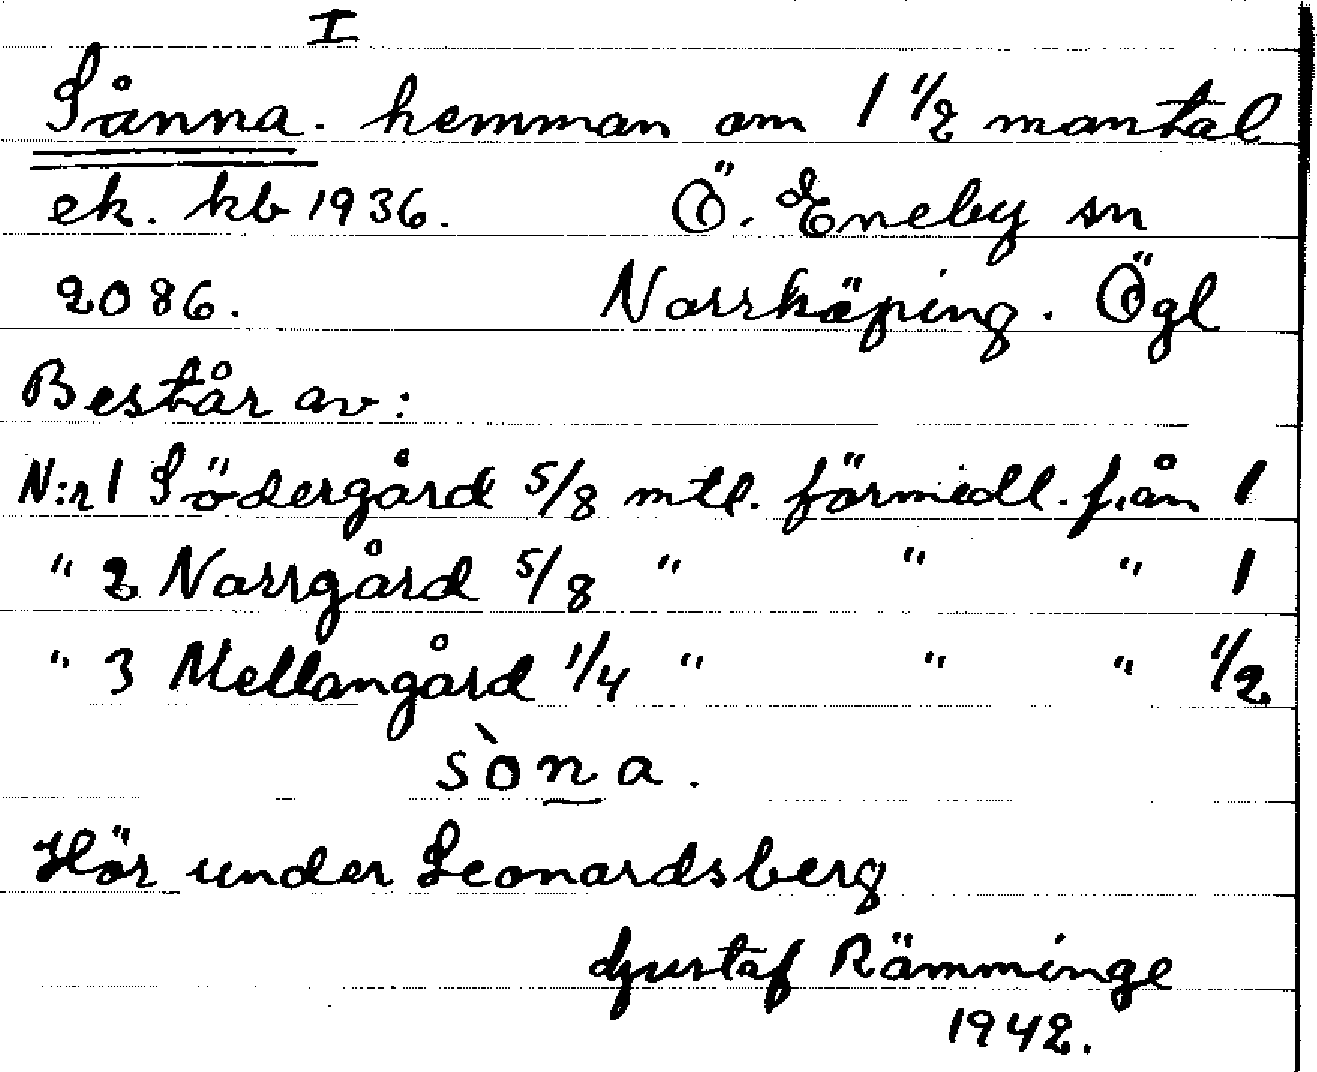 I
Sånna. hemman om 1 1/2 mantal
ek. kb 1936. Ö. Eneby sn
2086. Norrköping. Ögl
Består av:
N:r 1 Södergård 5/8 mtl. förmedl. från 1
" 2 Norrgård 5/8 " " " 1
" 3 Mellangård 1/4 " " " 1/2
sòna.
Hör under Leonardsberg
Gustaf Rämminge
1942.